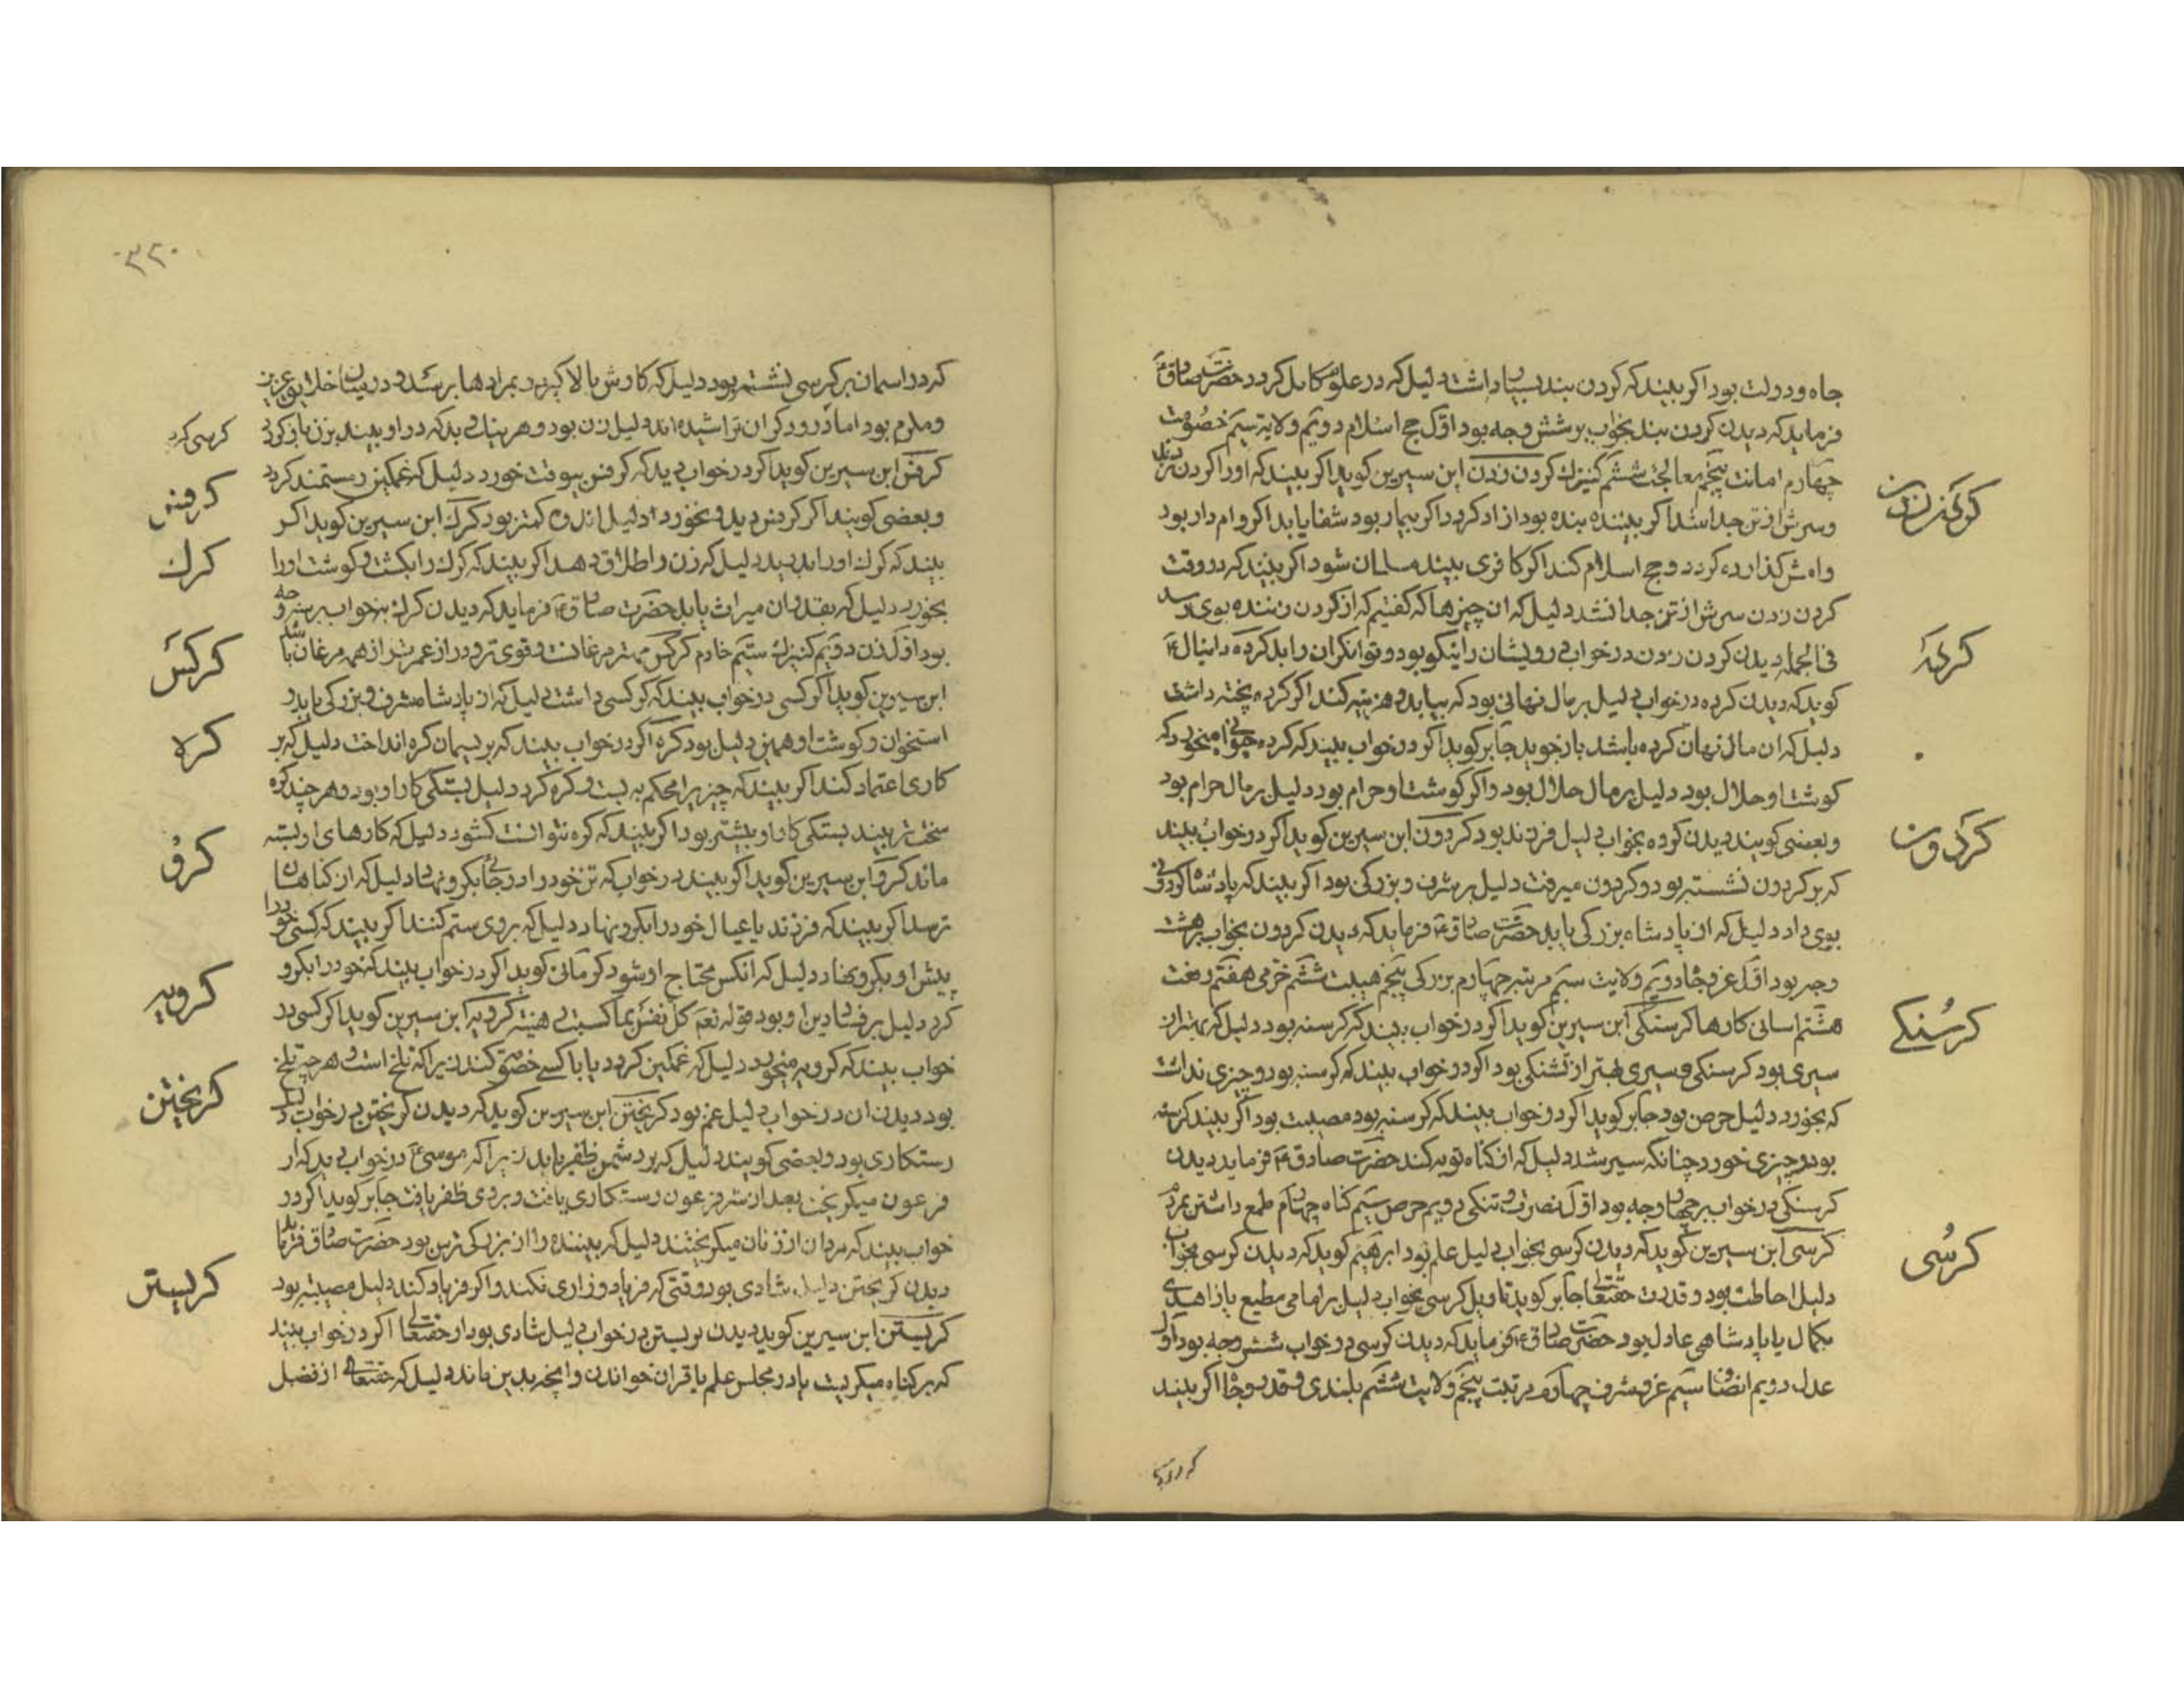 جاه و دولت بود اکر بیند که کردن بند بسیار داشت دلیل که در علوم کامل کردد حضرت صادقؑ
فرماید که دیدن کردن بند بخواب بر شش وجه بود اوّل حج اسلام دویّم ولایت سیّم خصومت
چهارم امانت پنجم معالجت ششم کنیزک کردن زدن ابن سیرین کوید اکر بیند که او را کردن زدند
و سرش از تن جدا شد اکر بیننده بنده بود ازاد کردد اکر بیمار بود شفا یابد اکر وام دار بود
وامش کذارده کردد و حج اسلام کند اکر کافری بیند مسلمان شود اکر بیند که در وقت
کردن زدن سرش از تن جدا نشد دلیل که ان چیزها که کفتیم که از کردن زننده بوی رسد
فی الجمله دیدن کردن زدن در خواب درویشان را نیکو بود و توانکران را بد کرده دانیالؑ
کوید که دیدن کرده در خواب دلیل بر مال نهانی بود که بیابد و هزینه کند اکر کرده پخته داشت
دلیل که ان مال نهان کرده باشد بازجوید جابر کوید اکر در خواب بیند که کرده حیوانی میخورد که
کوشت او حلال بود دلیل بر مال حلال بود و اکر کوشت او حرام بود دلیل بر مال حرام بود
و بعضی کویند دیدن کرده بخواب دلیل فرزند بود کردون ابن سیرین کوید اکر در خواب بیند
که بر کردون نشسته بود و کردون میرفت دلیل بر شرف و بزرکی بود اکر بیند که پادشاه کردونی
بوی داد دلیل که از پادشاه بزرکی یابد حضرت صادقؑ فرماید که دیدن کردون بخواب بر هشت
وجه بود اوّل عز و جاه دویّم ولایت سیّم مرتبه چهارم بزرکی پنجم هیبت ششم خرمی هفتم رفعت
هشتم اسانی کارها کرسنکی ابن سیرین کوید اکر در خواب بیند که کرسنه بود دلیل که بهتر از
سیری بود کرسنکی و سیری بهتر از تشنکی بود اکر در خواب بیند که کرسنه بود و چیزی نداشت
که بخورد دلیل حرص بود جابر کوید اکر در خواب بیند که کرسنه بود مصیبت بود اکر بیند کرسنه
بود و چیزی خورد چنانکه سیر شد دلیل که از کناه توبه کند حضرت صادقؑ فرماید دیدن
کرسنکی در خواب بر چهار وجه بود اوّل و تنکی دویم حرص سیّم کناه چهارم طمع داشتن بمردم
کرسی ابن سیرین کوید که دیدن کرسی بخواب دلیل علم بود ابرهیم کوید که دیدن کرسی بخواب
دلیل احاطت بود و قدرت حقتعالی جابر کوید تاویل کرسی بخواب دلیل بر امامی مطیع یا زاهدی
بکمال یا پادشاهی عادل بود حضرت صادقؑ فرماید که دیدن کرسی در خواب شش وجه بود اوّل
عدل دویم انصاف سیّم عز و شرف چهارم مرتبت پنجم ولایت ششم بلندی و قدر و جاه اکر بیند
کردن زدن
کرده
کردون
کرسنکی
کرسی
که در اسمان
۳۲۰
که در اسمان بر کرسی نشسته بود دلیل که کارش بالا کیرد و بمرادها برسد و در میان خلایق عزیز
و مکرم بود اما درودکر ان تراشیده اند دلیل زن بود و هر نیک و بد که در او بیند بزن باز کردد
کرفس ابن سیرین کوید اکر در خواب دید که کرفس بیوقت خورد دلیل که غمکین و مستمند کردد
و بعضی کویند اکر کرفس دید و نخورد دلیل اندوه کمتر بود کرک ابن سیرین کوید اکر
بیند که کرک او را بدرید دلیل که زن را طلاق دهد اکر بیند که کرک را بکشت و کوشت او را
بخورد دلیل که بقدر ان میراث یابد حضرت صادقؑ فرماید که دیدن کرک بخواب بر سه وجه
بود اوّل زن دویّم کنیزک سیّم خادم کرکس مهتر مرغانست و قوی تر و دراز عمرتر از همه مرغان باشد
ابن سیرین کوید اکر کسی در خواب بیند که کرکسی داشت دلیل که از پادشاه شرف و بزرکی یابد و
استخوان و کوشت او همین دلیل بود کره اکر در خواب بیند که بر ریسمان کره انداخت دلیل که بر
کاری اعتماد کند اکر بیند که چیزیرا محکم به بست و کره کرد دلیل بستکی کار او بود و هر چند کره
سخت تر بیند بستکی کار او بیشتر بود اکر بیند که کره نتوانست کشود دلیل که کارهای او بسته
ماند کرو ابن سیرین کوید اکر بیند در خواب که تن خود را در جائی بکرو نهاد دلیل که از کناهان
ترسد اکر بیند که فرزند یا عیال خود را بکرو نهاد دلیل که بر وی ستم کنند اکر بیند که کسی خود را
پیش او بکرو نهاد دلیل که انکس محتاج او شود کرمانی کوید اکر در خواب بیند که خود را بکرو
کرد دلیل بر فساد دین او بود قوله تعم کل نفس بما کسبت رهینه کرویه ابن سیرین کوید اکر کسی در
خواب بیند که کرویه میخورد دلیل که غمکین کردد یا با کسی خصومت کند زیرا که تلخ است و هر چه تلخ
بود دیدن ان در خواب دلیل غم بود کریختن ابن سیرین کوید که دیدن کریختن در خواب دلیل
رستکاری بود و بعضی کویند دلیل که بر دشمن ظفر یابد زیرا که موسیؑ در خواب دید که از
فرعون میکریخت بعد از شر فرعون رستکاری یافت و بر وی ظفر یافت جابر کوید اکر در
خواب بیند که مردان از زنان میکریختند دلیل که بیننده را از بزرکی ترس بود حضرت صادق فرماید
دیدن کریختن دلیل شادی بود وقتی که فریاد و زاری نکند و اکر فریاد کند دلیل مصیبت بود
کریستن ابن سیرین کوید دیدن کریستن در خواب دلیل شادی بود از حقتعالی اکر در خواب بیند
که بر کناه میکریست یا در مجلس علم یا قران خواندن و انچه بدین ماند دلیل که حقتعالی از فضل
کرسی کر
کرفس
کرک
کرکس
کره
کرو
کرویه
کریختن
کریستن